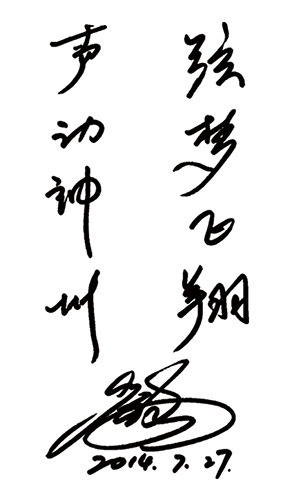 弦梦飞翔
声动神州
2014.7.27.